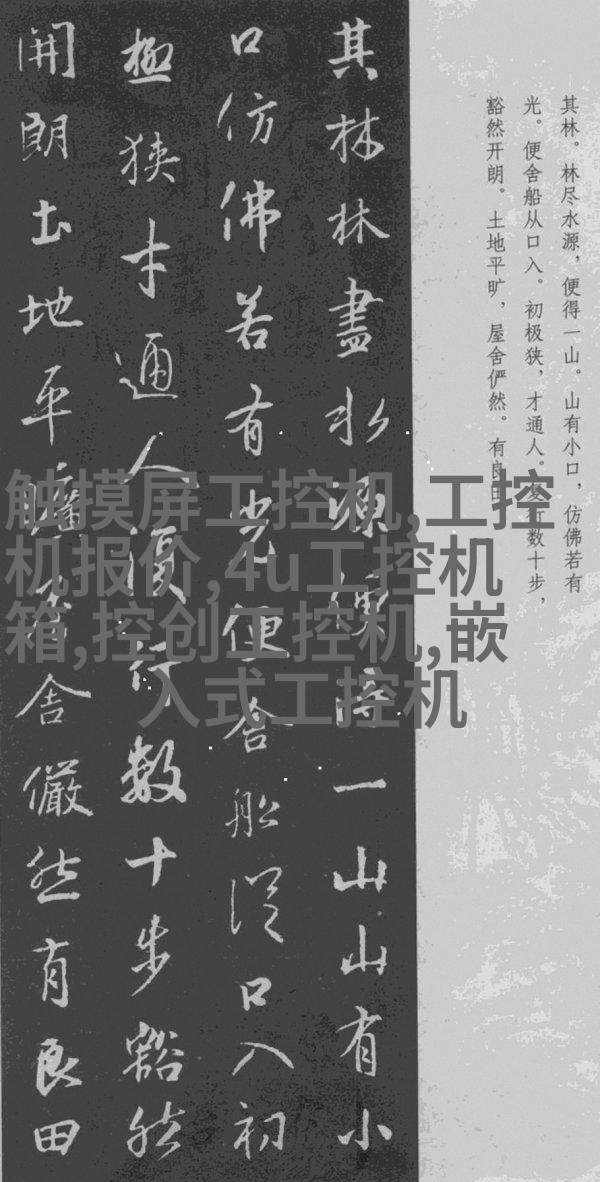 其林。林尽水源，便得一山。山有小口，仿佛若有
光。便舍船从口入。初极狭，才通人。复行数十步，
豁然开朗。土地平旷，屋舍俨然。有良田
其林林盡水源便得一山山有小
口仿佛若有光便舍船從口入初
極狹才通人復行數十步豁然
開朗土地平曠屋舍儼然有良田
触摸屏工控机,工控
机报价,4u工控机
箱,控创工控机,嵌
入式工控机